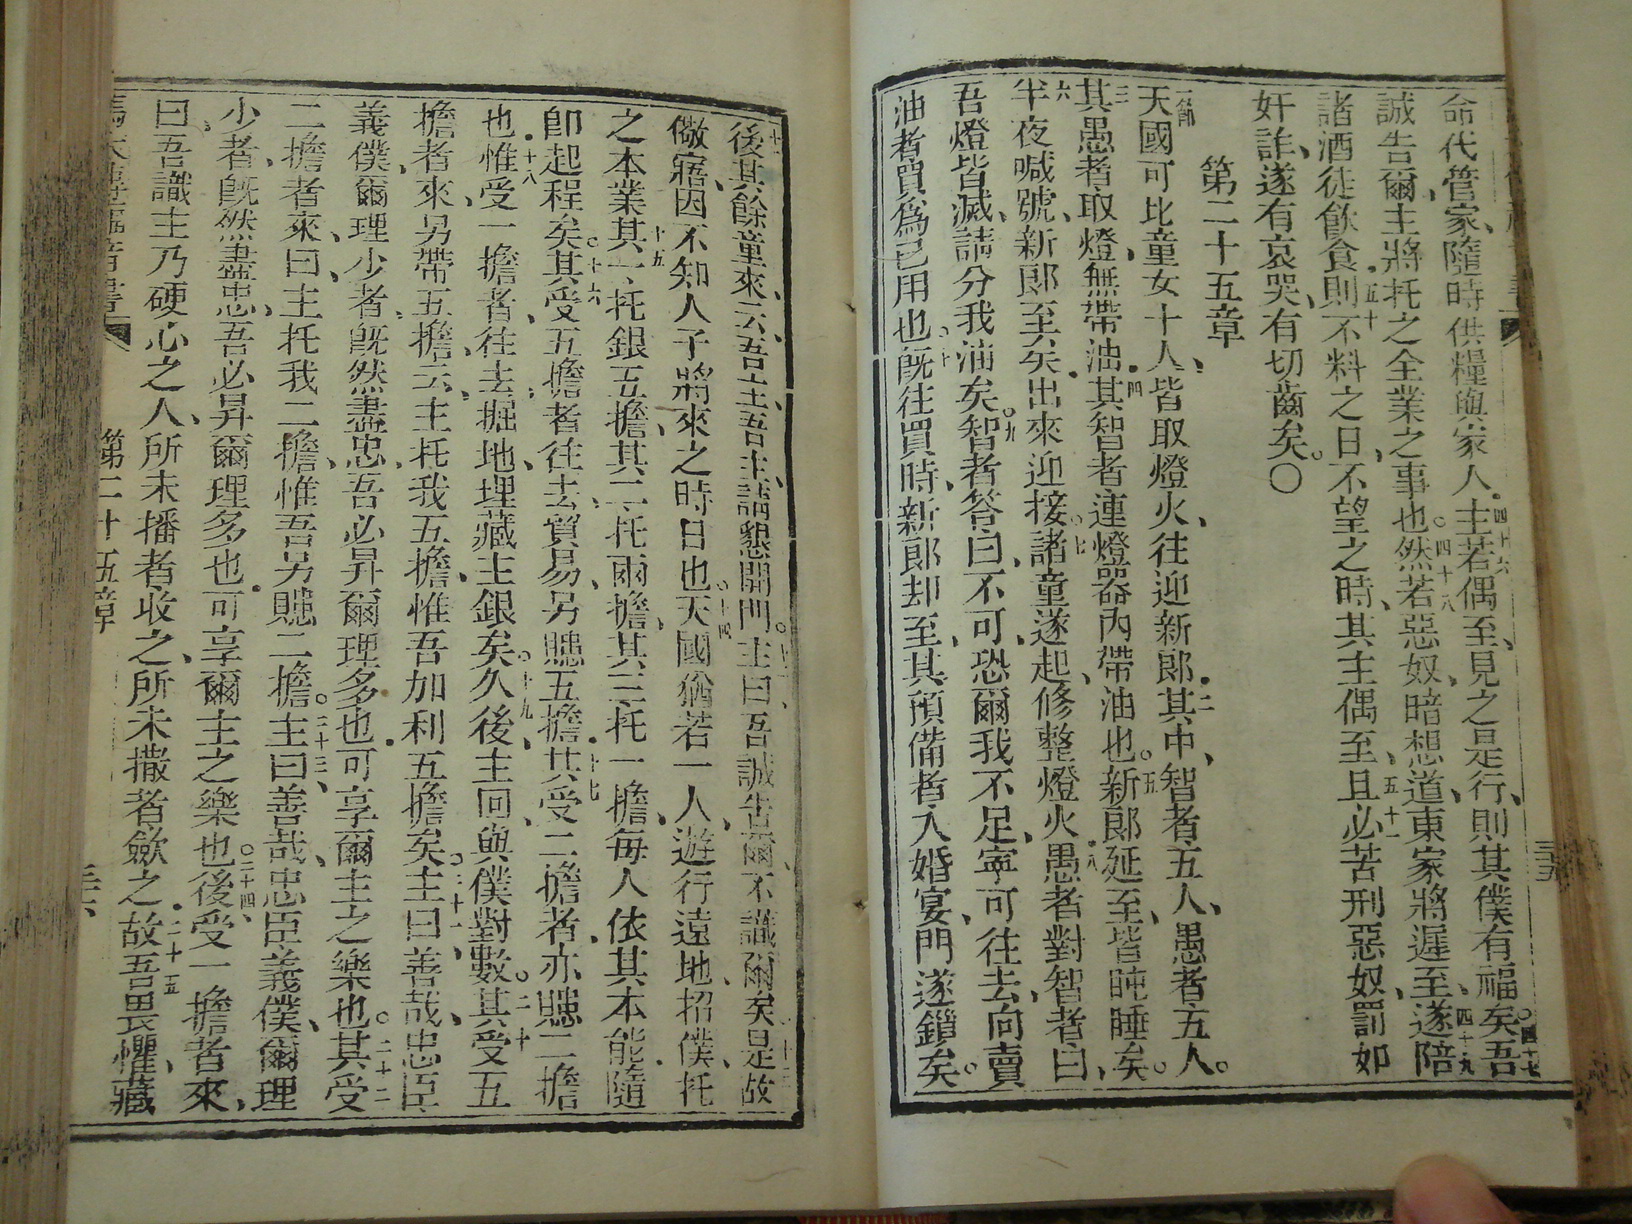 命代管家、隨時供糧與家人.四十六主若偶至、見之是行、則其僕有福矣。四十七吾
誠告爾、主將托之全業之事也。四十八然若惡奴、暗想道、東家將遲至、四十九遂陪
諸酒徒飲食.五十則不料之日、不望之時、其主偶至、五十一且必苦刑惡奴、罰如
奸詐、遂有哀哭、有切齒矣。〇
第二十五章
一節天國可比童女十人、皆取燈火、往迎新郎.二其中、智者五人、愚者五人。
三其愚者取燈、無帶油.四其智者連燈器內帶油也。五新郎延至、皆盹睡矣。
六半夜喊號、新郎至矣.出來迎接。七諸童遂起、修整燈火.八愚者對智者曰、
吾燈皆滅、請分我油矣。九智者答曰、不可、恐爾我不足、寧可往去、向賣
油者買為己用也。十既往買時、新郎却至、其預備者入婚宴、門遂鎖矣。
十一後其餘童來云、吾主、吾主、請懇開門。十二主曰、吾誠告爾、不識爾矣.十三是故
儆寤、因不知人子將來之時日也。十四天國猶若一人、遊行遠地、招僕、托
之本業.十五其一托銀五擔、其二托兩擔、其三托一擔、每人依其本能.隨
卽起程矣。十六其受五擔者往去貿易、另賺五擔.十七其受二擔者、亦賺二擔
也.十八惟受一擔者、往去掘地、埋藏主銀矣。十九久後、主回、與僕對數。二十其受五
擔者來、另帶五擔、云、主托我五擔、惟吾加利五擔矣。二十一主曰、善哉、忠臣
義僕、爾理少者、既然盡忠、吾必昇爾理多也.可享爾主之樂也。二十二其受
二擔者來、曰、主托我二擔、惟吾另賺二擔。二十三主曰、善哉、忠臣義僕、爾理
少者、既然盡忠、吾必昇爾理多也.可享爾主之樂也。二十四後受一擔者來、
曰、吾識主乃硬心之人、所未播者收之、所未撒者斂之.二十五故吾畏懼、藏
第二十五章